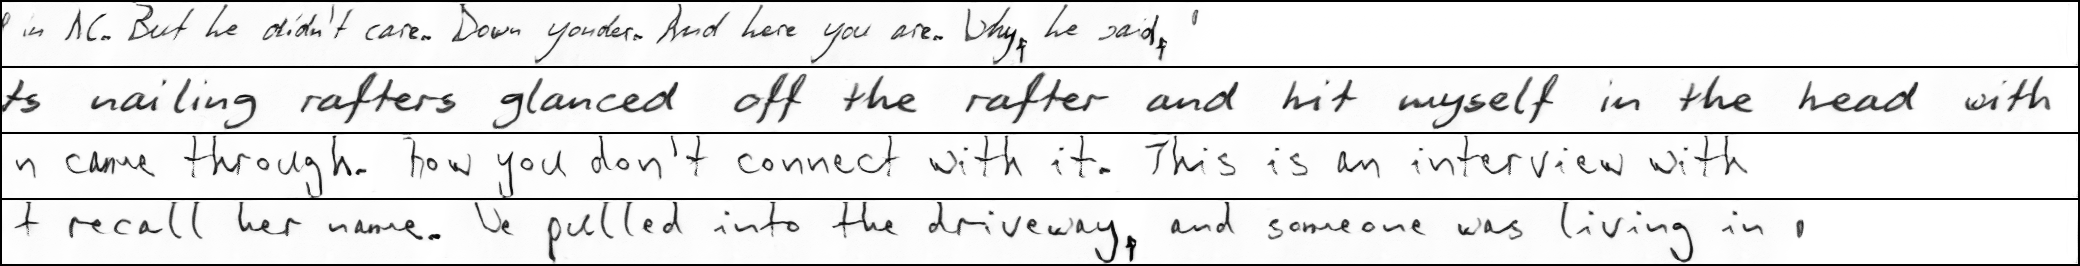 in NC. But he didn't care. Down yonder. And here you are. Why, he said,
ts nailing rafters glanced off the rafter and hit myself in the head with
n came through. How you don't connect with it. This is an interview with
t recall her name. We pulled into the driveway, and someone was living in